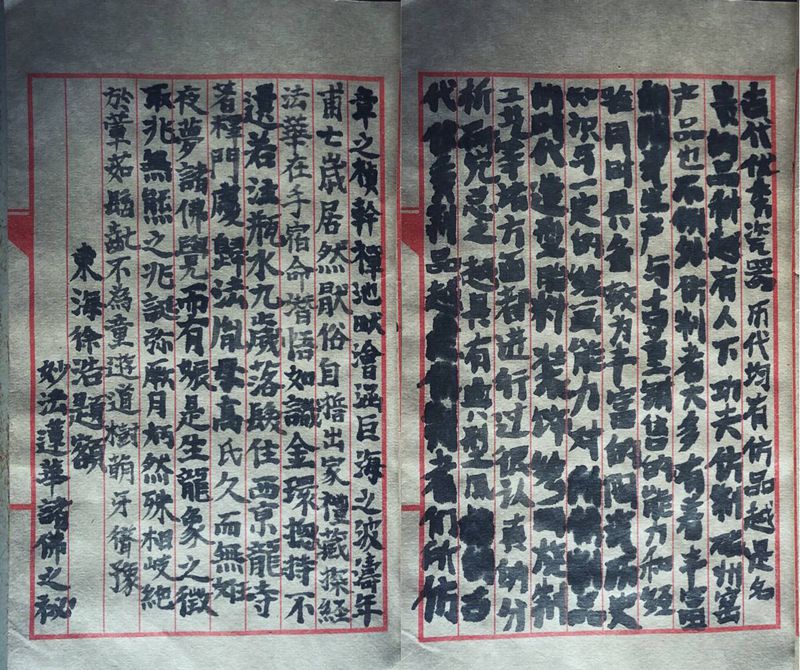 古代优秀瓷器历代均有仿品越是名
贵的品种越有人下功夫仿制磁州窑
产品也不例外仿制者大多有着丰富
生产与古董销售的能力和经
验同时具备较为丰富的陶瓷历史
知识与一定的能力对所仿制品
的时代造型胎料装饰烧制
工艺等诸方面者进行过很认真的分
析研究总之越具有典型风格的古
代优秀制品越是仿制者们所仿
章之楨幹禪地畎澮涵巨海之波濤年
甫七歲居然厭俗自誓出家禮藏探經
法華在手宿命潛悟如識金環揔持不
遺若注瓶水九歲落髮住西京龍寺
著釋門慶歸法胤母高氏久而無妊
夜夢諸佛覺而有娠是生龍象之徵
兆無熊之兆誕弥厥月炳然殊相岐絶
於葷茹髫齔不為童遊道樹萌牙聳豫
東海徐浩題額
妙法蓮華諸佛之秘